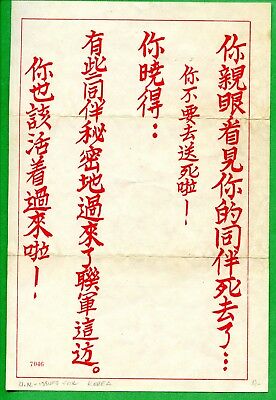 你親眼看見你的同伴死去了…
你不要去送死啦—
你曉得：
有些同伴秘密地過來了聯軍這边。
你也該活着過來啦—
7046
U.N. - ISSUED FOR KOREA